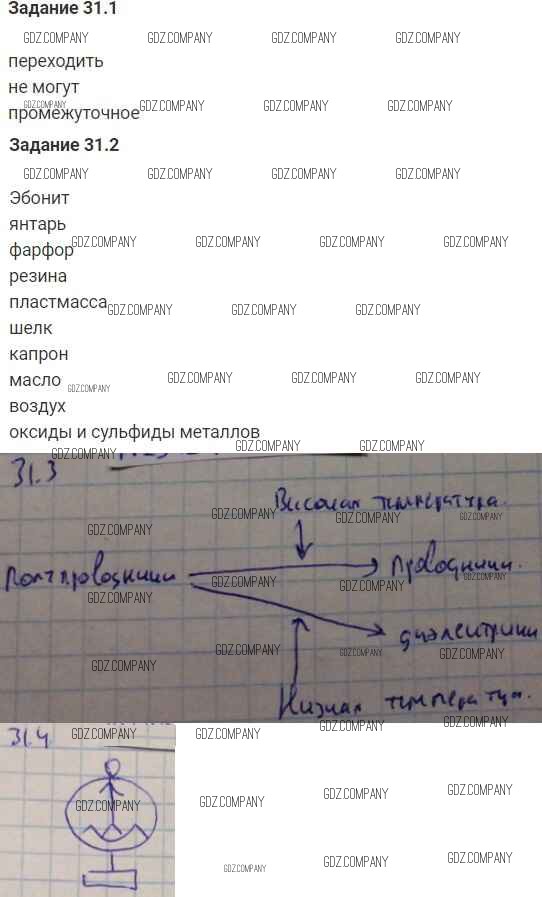 Задание 31.1
GDZ.COMPANY GDZ.COMPANY GDZ.COMPANY GDZ.COMPANY
переходить
не могут
GDZ.COMPANY GDZ.COMPANY GDZ.COMPANY GDZ.COMPANY
промежуточное
Задание 31.2
GDZ.COMPANY GDZ.COMPANY GDZ.COMPANY GDZ.COMPANY
Эбонит
янтарь
GDZ.COMPANY GDZ.COMPANY GDZ.COMPANY GDZ.COMPANY
фарфор
резина
пластмасса
GDZ.COMPANY GDZ.COMPANY GDZ.COMPANY
шелк
капрон
масло
GDZ.COMPANY GDZ.COMPANY GDZ.COMPANY GDZ.COMPANY
воздух
оксиды и сульфиды металлов
GDZ.COMPANY GDZ.COMPANY GDZ.COMPANY
31.3
Высокая температура.
GDZ.COMPANY GDZ.COMPANY GDZ.COMPANY GDZ.COMPANY
Полупроводники
проводники.
GDZ.COMPANY GDZ.COMPANY GDZ.COMPANY
диэлектрики
GDZ.COMPANY GDZ.COMPANY GDZ.COMPANY GDZ.COMPANY
Низкая температура.
31.4
GDZ.COMPANY GDZ.COMPANY GDZ.COMPANY GDZ.COMPANY
GDZ.COMPANY GDZ.COMPANY GDZ.COMPANY GDZ.COMPANY
GDZ.COMPANY GDZ.COMPANY GDZ.COMPANY